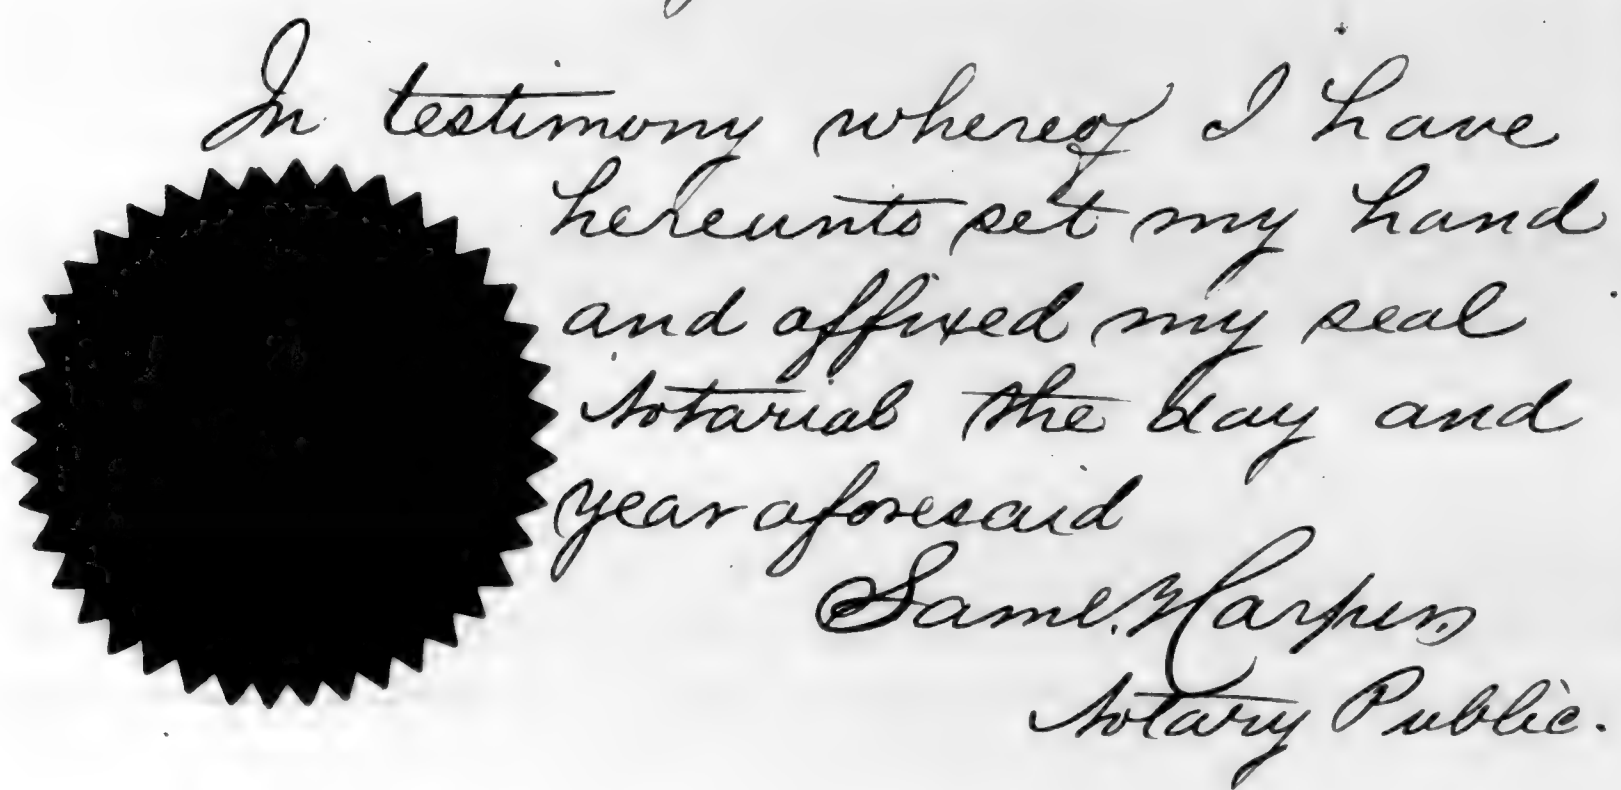 In testimony whereof I have
hereunto set my hand
and affixed my seal
Notarial the day and
year aforesaid
Saml. Harper,
Notary Public.